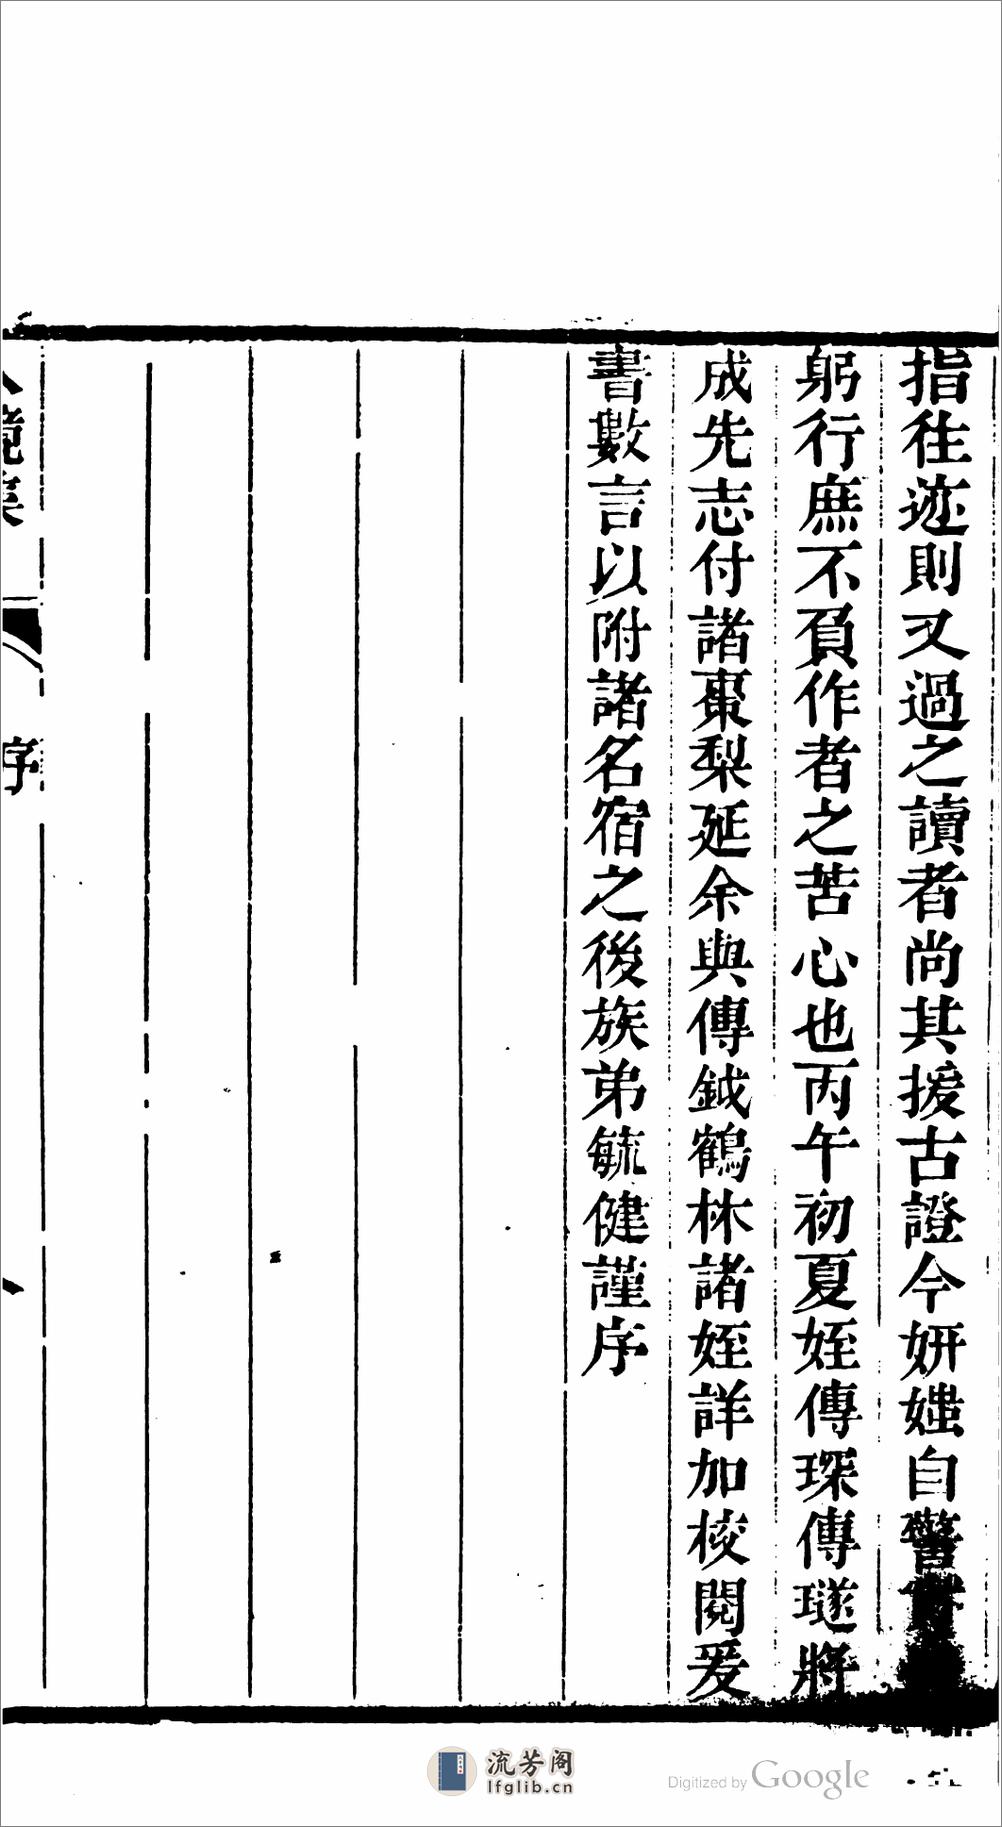 指往迹則又過之讀者尚其援古證今妍媸自警
躬行庶不負作者之苦心也丙午初夏姪傳琛傳璲將
成先志付諸棗梨延余與傳鉞鶴林諸姪詳加校閱爰
書數言以附諸名宿之後族弟毓健謹序
鏡集
序
流芳阁
lfglib.cn
Digitized by Google